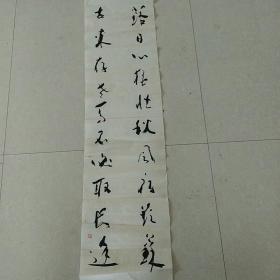 落日心猶壯秋風病欲蘇
古來存老馬不必取長途